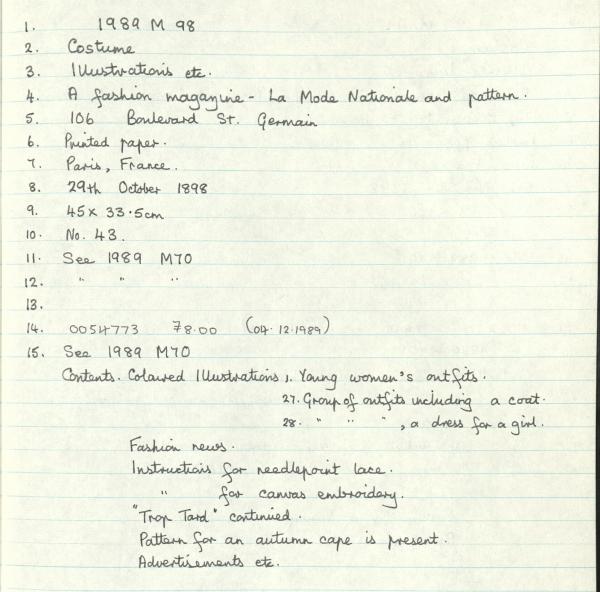 1. 1989 M 98
2. Costume
3. Illustrations etc.
4. A fashion magazine - La Mode Nationale and pattern.
5. 106 Boulevard St. Germain
6. Printed paper.
7. Paris, France.
8. 29th October 1898
9. 45 x 33.5cm
10. No. 43.
11. See 1989 M70
12. " " "
13.
14. 0054773 78.00 (04.12.1989)
15. See 1989 M70
Contents. Coloured Illustrations, 1. Young women's outfits.
27. Group of outfits including a coat.
28. " " " , a dress for a girl.
Fashion news.
Instructions for needlepoint lace.
" for canvas embroidery.
"Trop Tard" continued.
Pattern for an autumn cape is present.
Advertisements etc.